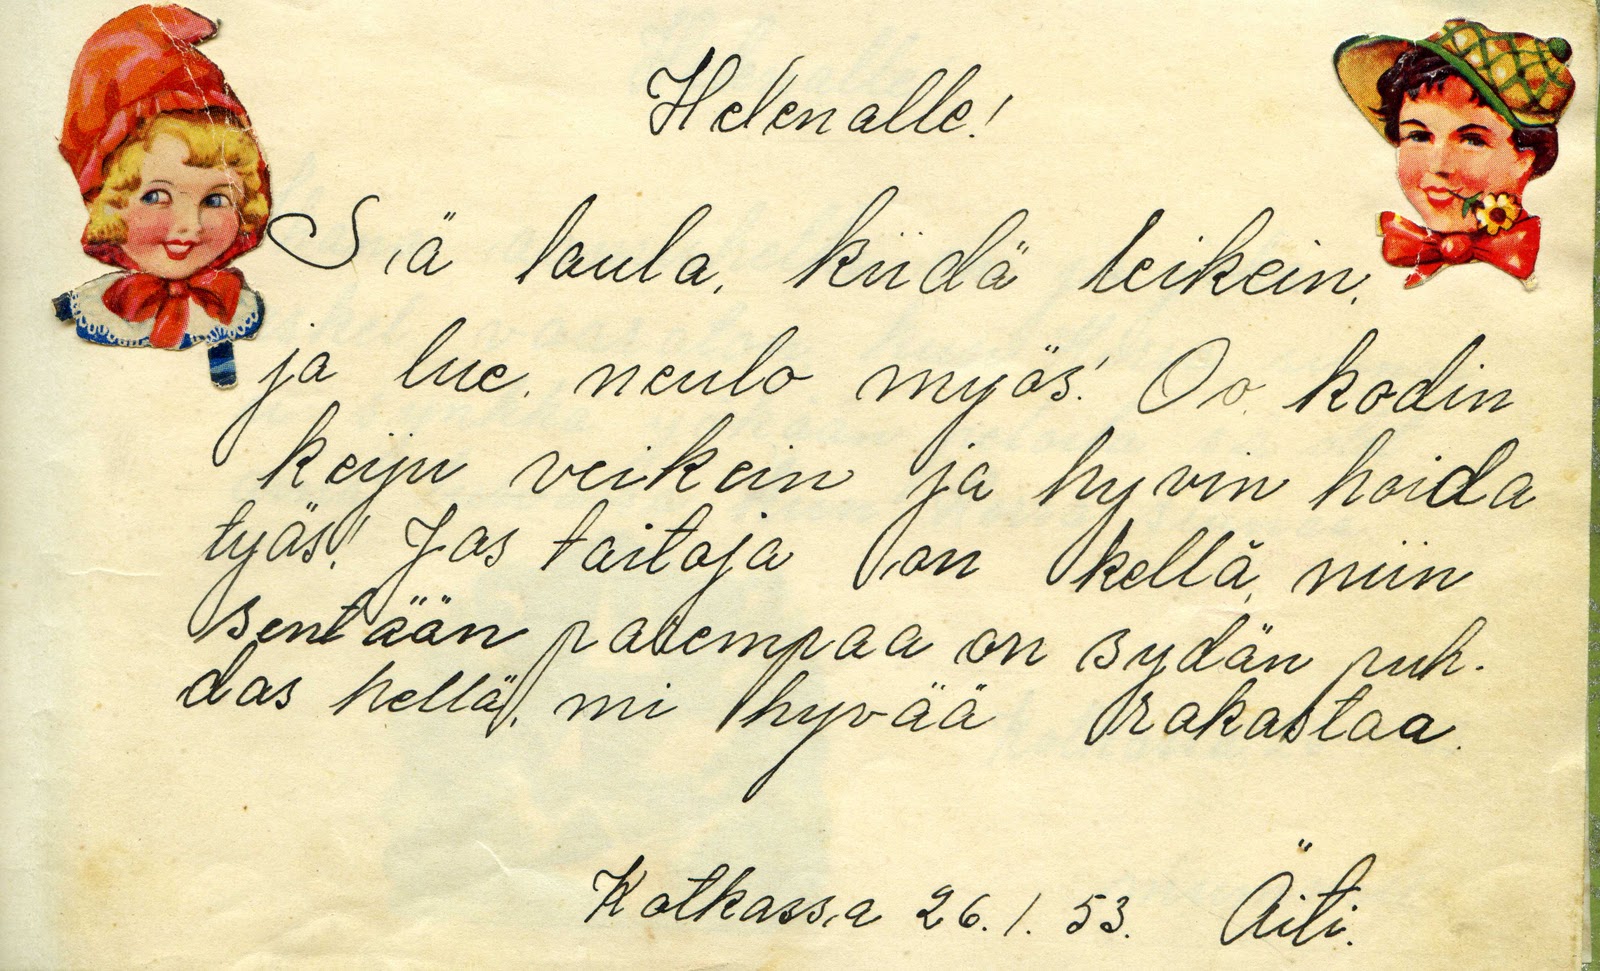 Helenalle!
Siä laula, kiidä leikein,
ja lue, neulo myös! Oo kodin
keiju veikein ja hyvin hoida
työs! Jos taitoja on kellä, niin
sentään parempaa on sydän puh-
das hellä, mi hyvää rakastaa.
Kotkassa 26.1.53. Äiti.